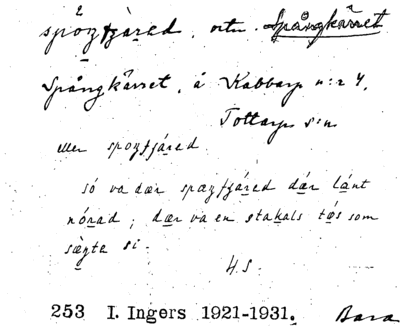 spåŋfjàred, ortn. Spångkärret
Spångkärret, å Kabbarp n:r 4,
Tottarp s:n
eller spoŋfjáred
só va dær spæŋfjáred dár lánt
nórad; dær va en stakals tøs som
sægte si.
H.S.
253 I. Ingers 1921-1931. Bara